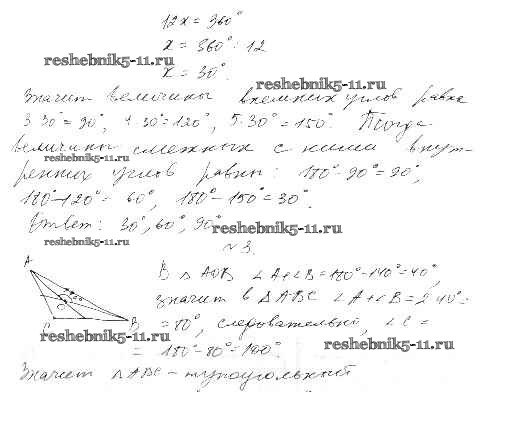 12x = 360°
x = 360° : 12
reshebnik5-11.ru
x = 30°.
reshebnik5-11.ru
Значит величины внешних углов равна
3·30° = 90°, 4·30° = 120°, 5·30° = 150°. Тогда
величины смежных с ними внут-
reshebnik5-11.ru
ренних углов равны: 180° - 90° = 90°,
180° - 120° = 60°, 180° - 150° = 30°.
Ответ: 30°, 60°, 90°
reshebnik5-11.ru
reshebnik5-11.ru
№ 3.
A
В △ AOB ∠A+∠B = 180° - 140° = 40°,
O
значит в △ ABC ∠A+∠B = 2·40° =
B
= 80°, следовательно, ∠C =
reshebnik5-11.ru
reshebnik5-11.ru
= 180° - 80° = 100°.
Значит △ ABC - тупоугольный